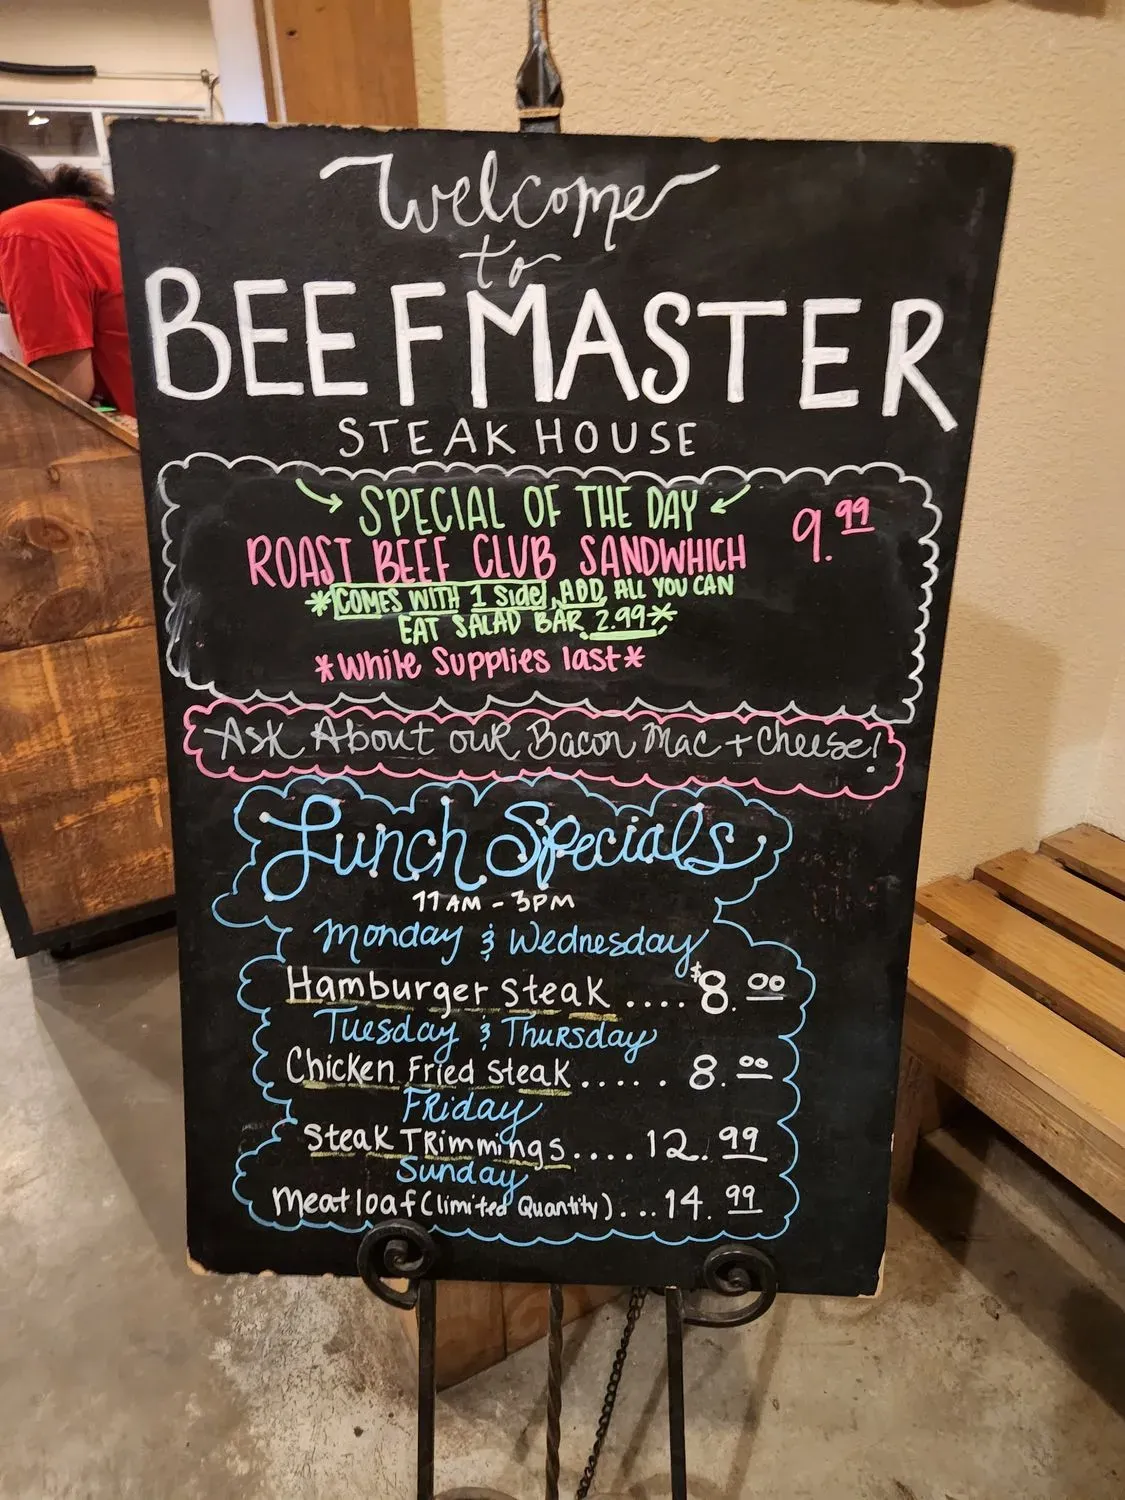 Welcome
to
BEEFMASTER
STEAK HOUSE
SPECIAL OF THE DAY
ROAST BEEF CLUB SANDWHICH 9.99
*COMES WITH 1 Side, ADD ALL YOU CAN
EAT SALAD BAR 2.99*
*While Supplies last*
Ask About our Bacon Mac + Cheese!
Lunch Specials
11AM - 3PM
Monday & Wednesday
Hamburger Steak .... $8.00
Tuesday & Thursday
Chicken Fried Steak ..... 8.00
Friday
Steak Trimmings.... 12.99
Sunday
Meatloaf (limited Quantity)... 14.99